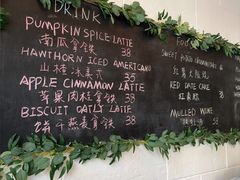 DRINK
PUMPKIN SPICE LATTE
南瓜拿铁 38
HAWTHORN ICED AMERICANO
山楂冰美式 35
APPLE CINNAMON LATTE
苹果肉桂拿铁 38
BISCUIT OATLY LATTE
饼干燕麦拿铁 38
FOOD
SWEET POTATO
RED DATE CAKE
红枣糕 38
MULLED WINE